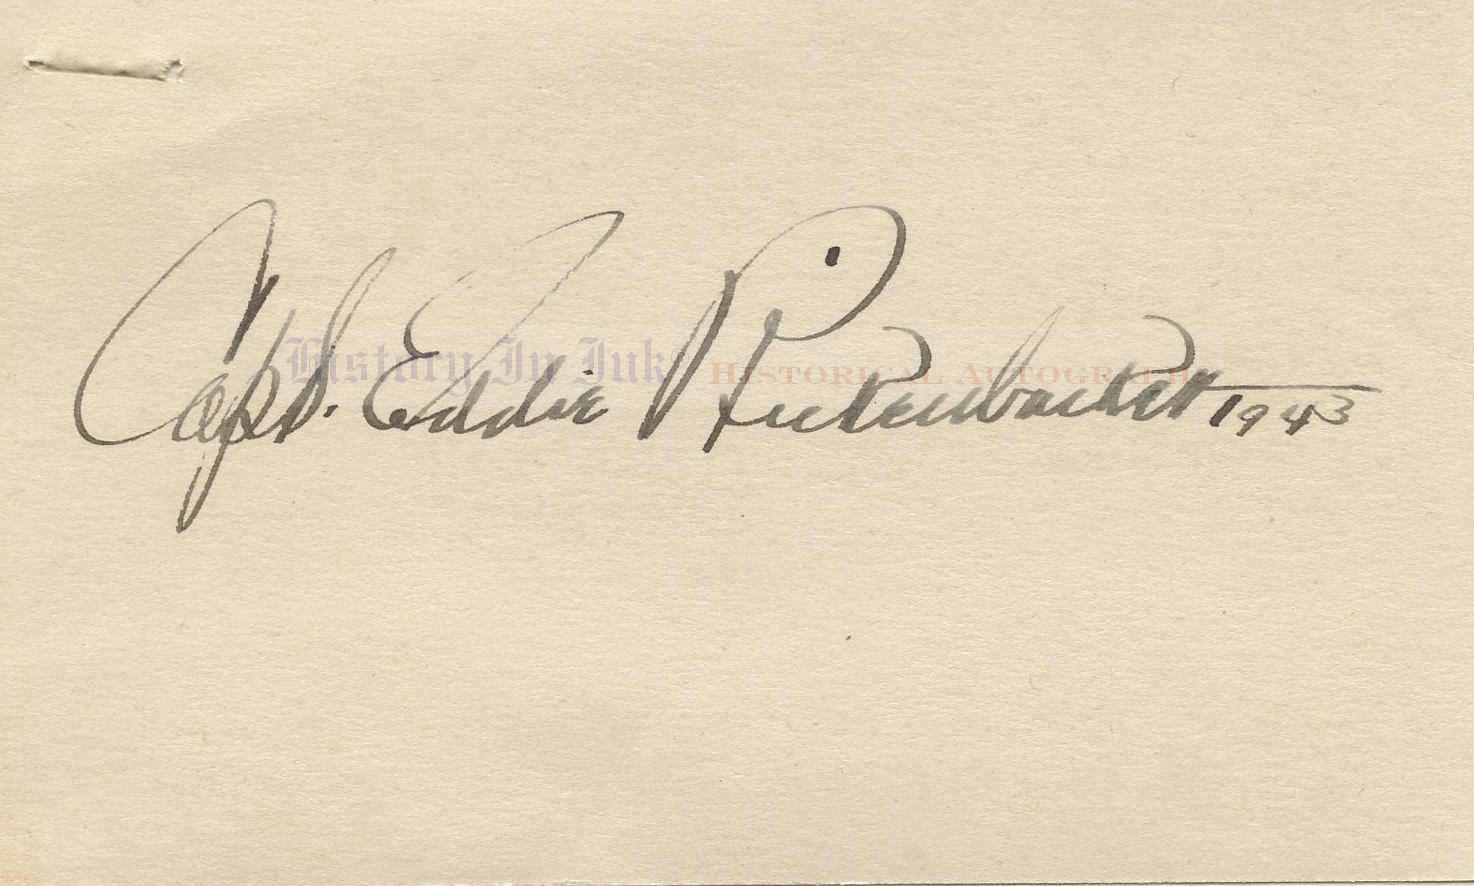 Capt. Eddie Rickenbacker 1943
History In Ink Historical Autographs